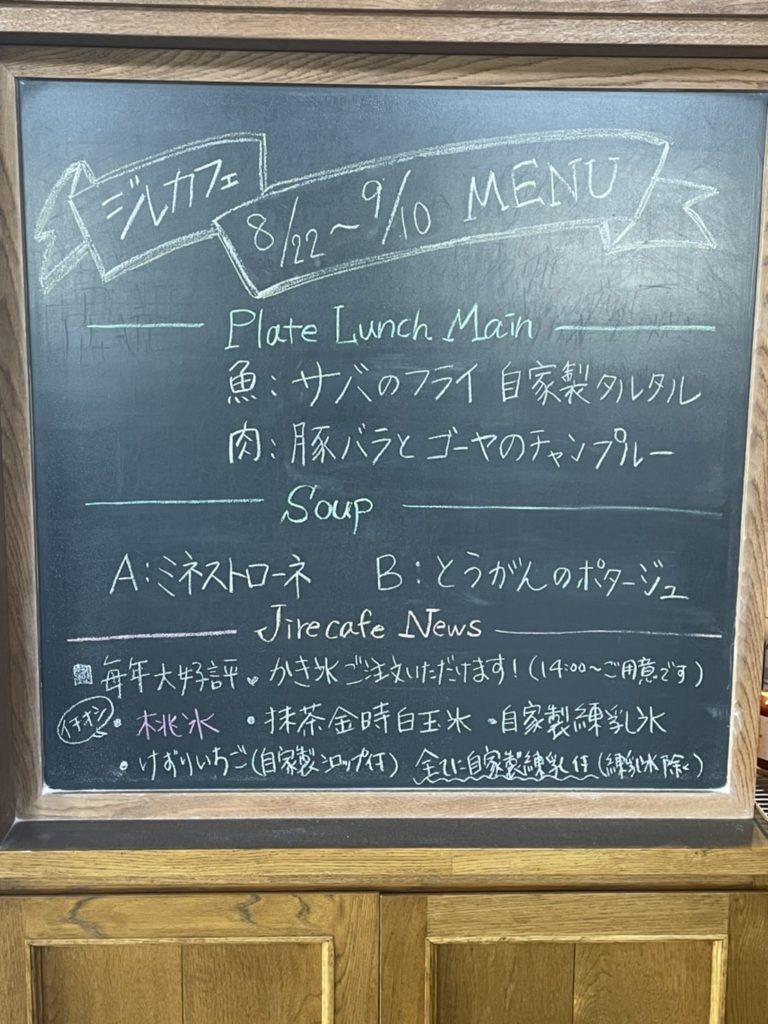 ジルカフェ 8/22～9/10 MENU
Plate Lunch Main
魚：サバのフライ 自家製タルタル
肉：豚バラとゴーヤのチャンプルー
Soup
A：ミネストローネ B：とうがんのポタージュ
Jirecafe News
毎年大好評。かき氷ご注文いただけます！(14:00～ご用意です)
イチオシ ・桃氷 ・抹茶金時白玉氷 ・自家製練乳氷
・けずりいちご(自家製シロップ付) 全てに自家製練乳付(練乳氷除く)